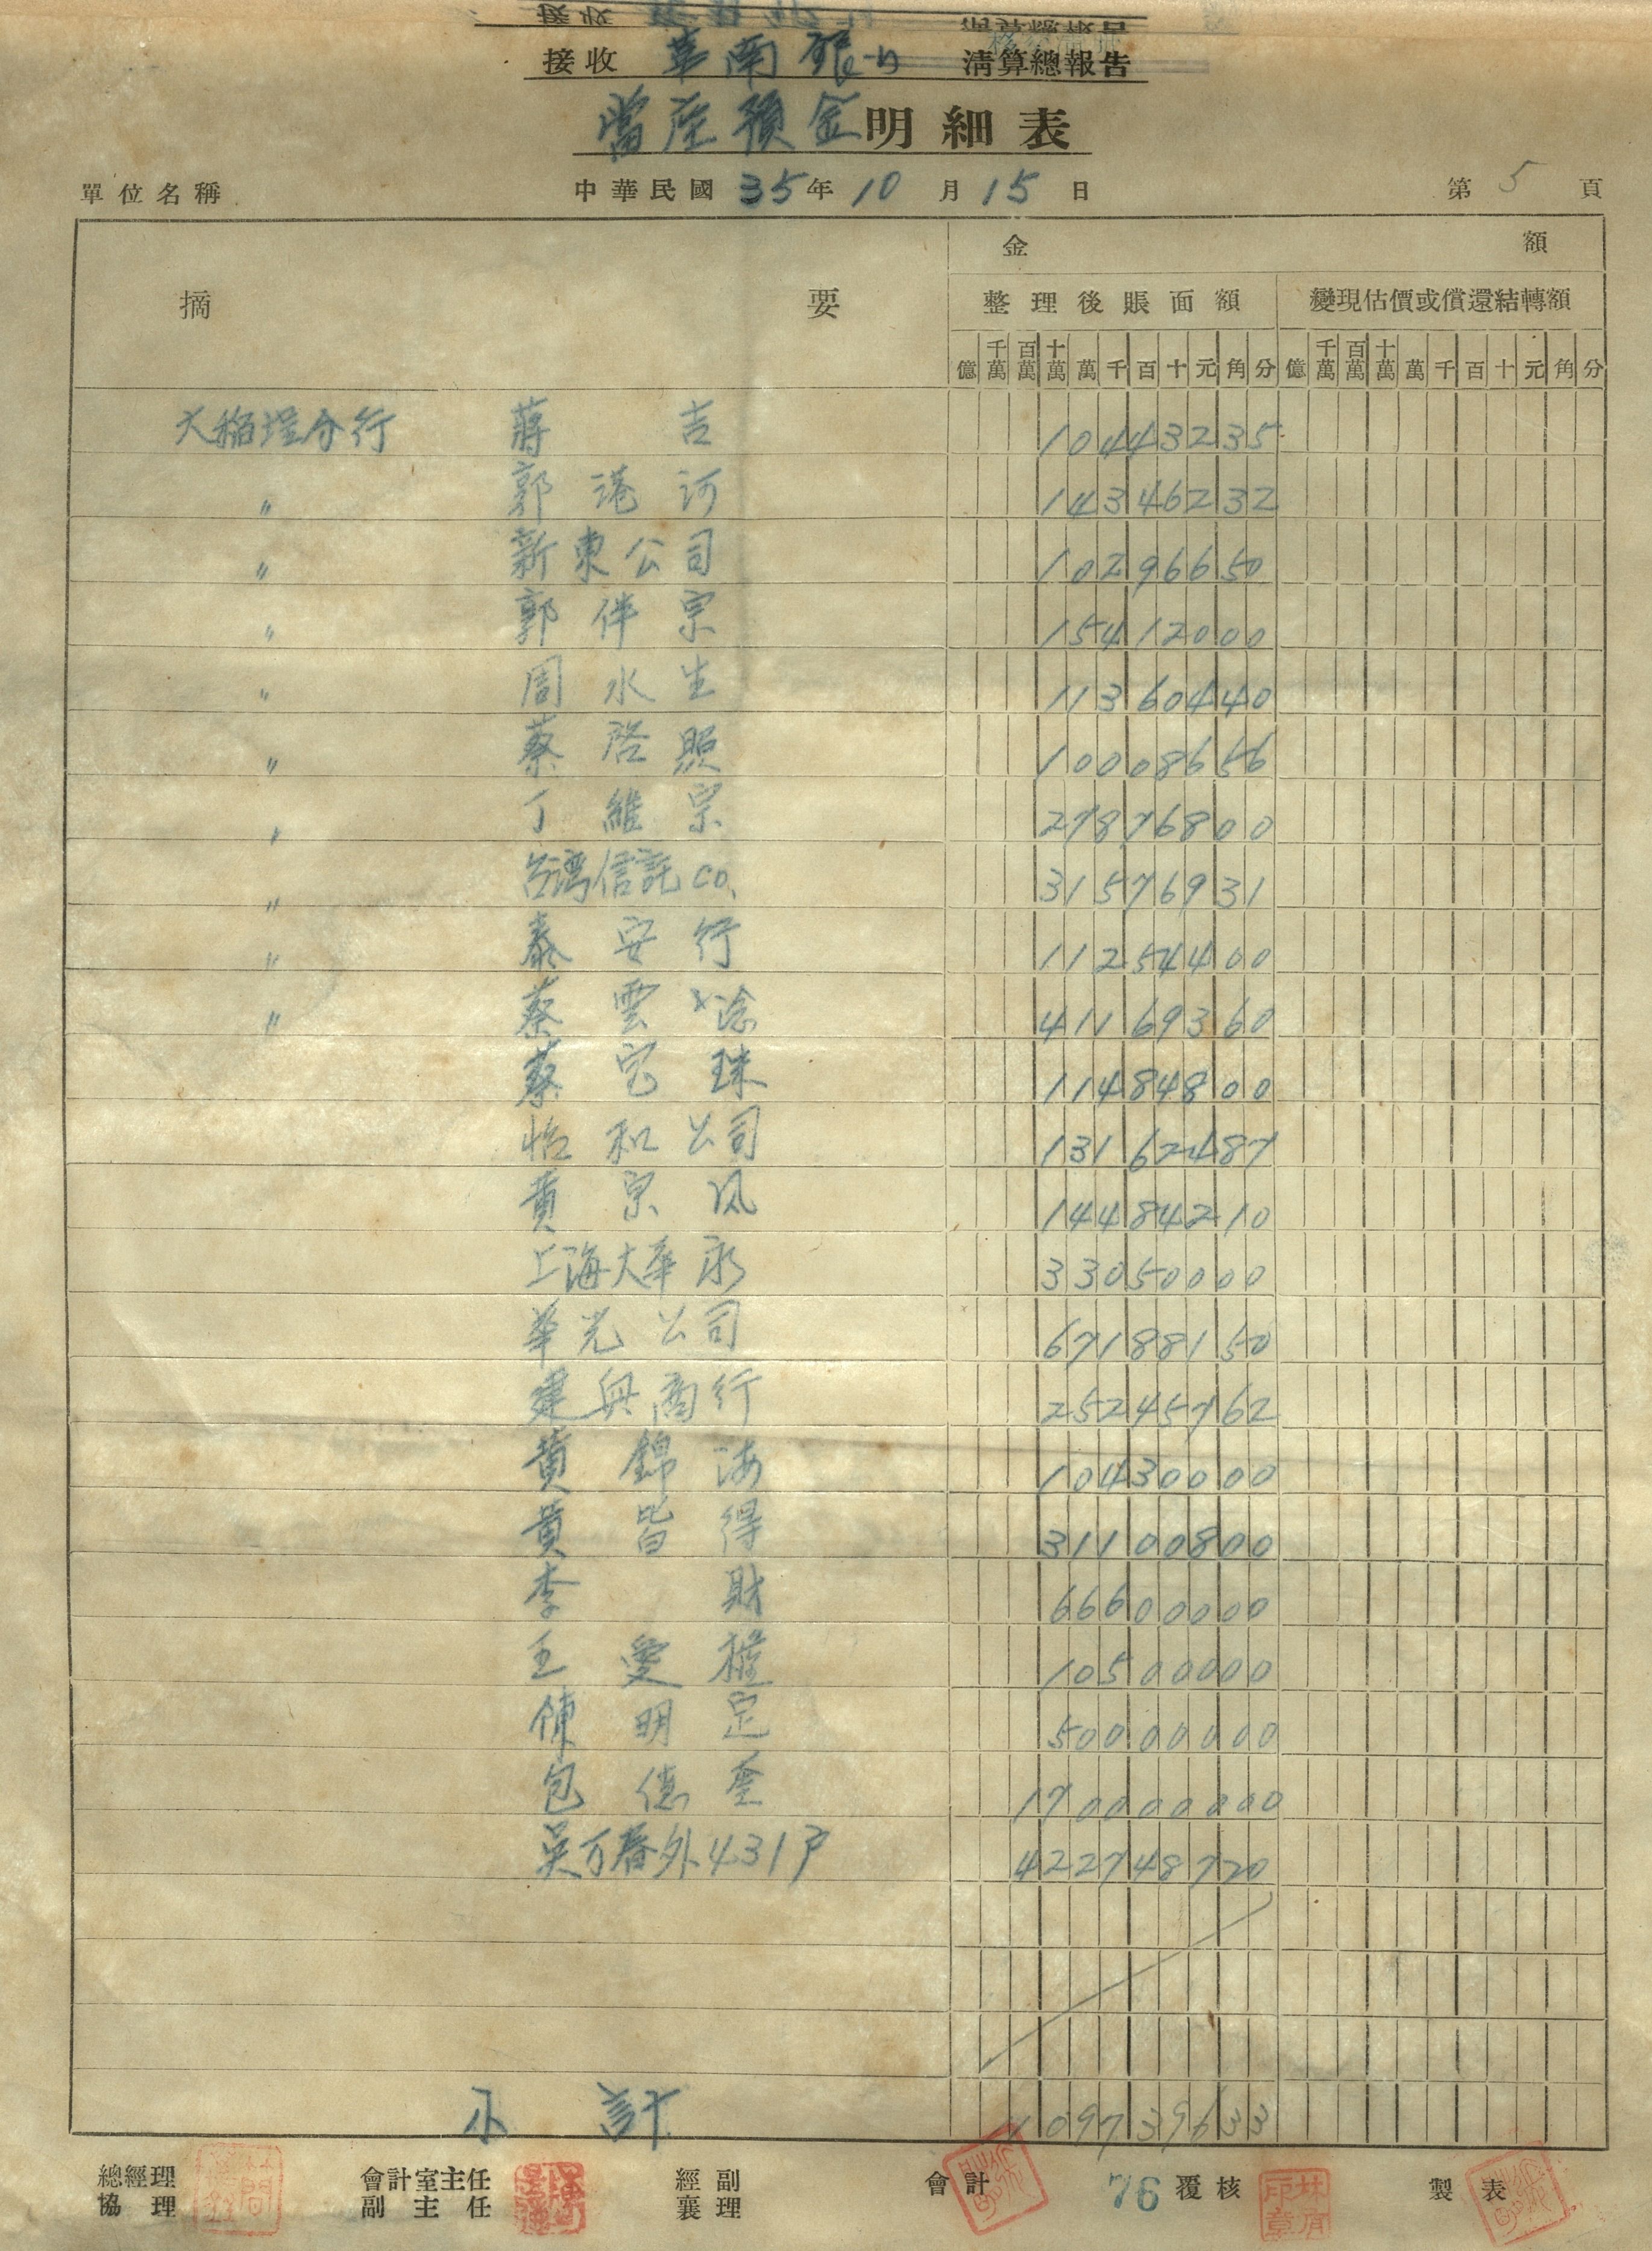 接收 華南銀行 清算總報告
當座預金明細表
單位名稱 中華民國 35年 10 月 15 日 第 5 頁
金額
摘要 整理後賬面額 變現估價或償還結轉額
億 千萬 百萬 十萬 萬 千 百 十 元 角 分 億 千萬 百萬 十萬 萬 千 百 十 元 角 分
大稻埕分行 蔣吉 10443235
〃 郭港河 14346232
〃 新東公司 10296650
〃 郭伴宗 15412000
〃 周水生 11360440
〃 蔡啓照 10008656
〃 丁維宗 27876800
〃 台湾信託co. 31576931
〃 泰安行 11254400
〃 蔡雲 41169360
蔡宝珠 11484800
怡和公司 13162487
黃宗风 14484210
上海大華永 33050000
華光公司 67188150
建興商行 25245762
黃錦海 10430000
黃皆得 31100800
李財 66600000
王愛權 10500000
陳明定 50000000
包德 170000000
吳万番外431戸 422748720
小計 1109739633
總經理 會計室主任 經副 會計 76 覆核 製表
協理 副主任 襄理